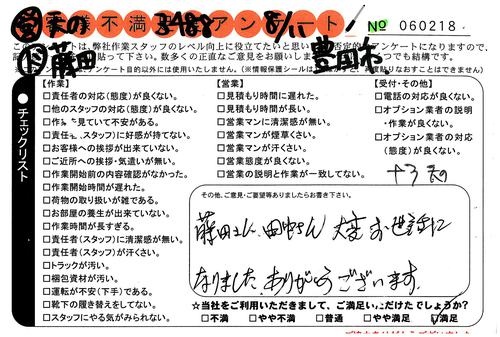 客様不満 3488 アンケート 8/11 No 060218
このアンケートは、弊社作業スタッフのレベル向上に役立てたいと思い アンケートになりますので、
藤田 豊田市
チェックリスト
【作業】
□責任者の対応(態度)が良くない。
□他のスタッフの対応(態度)が良くない。
□作 見ていて不安がある。
□責任 スタッフ)に好感が持てない。
□お客様への挨拶が出来ていない。
□ご近所への挨拶・気遣いが無い。
□作業開始前の内容確認がなかった。
□作業開始時間が遅れた。
□荷物の取り扱いが雑である。
□お部屋の養生が出来ていない。
□作業時間が長すぎる。
□責任者(スタッフ)に清潔感が無い。
□責任者(スタッフ)が汗くさい。
□トラックが汚い。
□梱包資材が汚い。
□運転が安全(下手)である。
□靴下の履き替えをしてない。
□スタッフにやる気がみられない。
【営業】
□見積もり時間に遅れた。
□見積もり時間が長い。
□営業マンに清潔感が無い。
□営業マンが煙草くさい。
□営業マンが汗くさい。
□営業態度が良くない。
□営業の説明と作業が一致してない。
【受付・その他】
□電話の対応が良くない。
□オプション業者の説明
・作業が良くない。
□オプション業者の対応
(態度)が良くない。
その他、ご意見・ご要望等ありましたらお書き下さい。
藤田さん、田中さん 大変お世話に
なりました。ありがとうございます。
☆当社をご利用いただきまして、ご満足いただけたでしょうか?
□不満 □やや不満 □普通 □やや満足 ☑満足